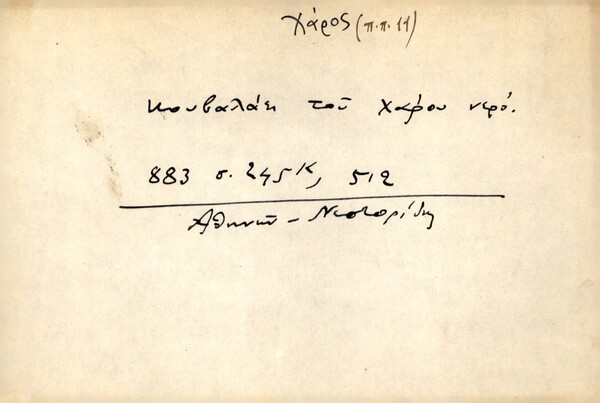 Χάρος (π.π. 11)
Κουβαλάει τοῦ χάρου νερό.
883 σ. 245 Κ, 512
Ἀθηνῶν - Νεστορίδης